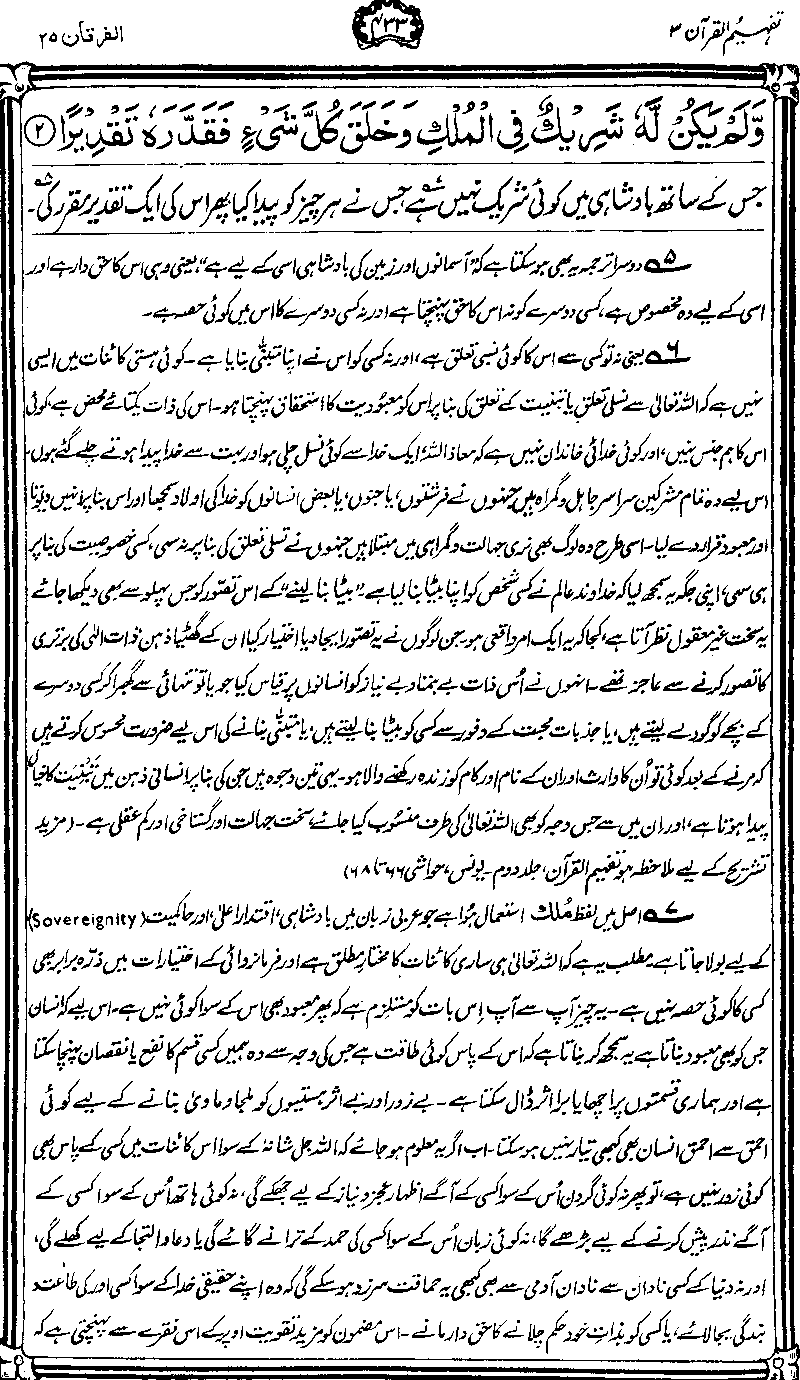 تفہیم القرآن ۳
۴۳۳
الفرقان ۲۵
وَّلَمْ يَكُنْ لَّهٗ شَرِيْكٌ فِى الْمُلْكِ وَخَلَقَ كُلَّ شَىْءٍ فَقَدَّرَهٗ تَقْدِيْرًا ②
جس کے ساتھ بادشاہی میں کوئی شریک نہیں ہے،۷ جس نے ہر چیز کو پیدا کیا پھر اس کی ایک تقدیر مقرر کی۔۸
۵ دوسرا ترجمہ یہ بھی ہو سکتا ہے کہ ”آسمانوں اور زمین کی بادشاہی اسی کے لیے ہے“، یعنی وہی اس کا حق دار ہے اور
اسی کے لیے وہ مخصوص ہے، کسی دوسرے کو نہ اس کا حق پہنچتا ہے اور نہ کسی دوسرے کا اس میں کوئی حصہ ہے۔
۶ یعنی نہ تو کسی سے اس کا کوئی نسبی تعلق ہے، اور نہ کسی کو اس نے اپنا متبنّٰی بنایا ہے۔ کوئی ہستی کائنات میں ایسی
نہیں ہے کہ اللہ تعالٰی سے نسلی تعلق یا تبنیت کے تعلق کی بنا پر اس کو معبودیت کا استحقاق پہنچتا ہو۔ اس کی ذات یکتائے محض ہے، کوئی
اس کا ہم جنس نہیں، اور کوئی خدائی خاندان نہیں ہے کہ معاذ اللہ ایک خدا سے کوئی نسل چلی ہو اور بہت سے خدا پیدا ہوتے چلے گئے ہوں۔
اس لیے وہ تمام مشرکین سراسر جاہل و گمراہ ہیں جنہوں نے فرشتوں، یا جنوں، یا بعض انسانوں کو خدا کی اولاد سمجھا اور اس بنا پر انہیں دیوتا
اور معبود قرار دے لیا۔ اسی طرح وہ لوگ بھی نری جہالت و گمراہی میں مبتلا ہیں جنہوں نے نسلی تعلق کی بنا پر نہ سہی، کسی خصوصیت کی بنا پر
ہی سہی، اپنی جگہ یہ سمجھ لیا کہ خداوند عالم نے کسی شخص کو اپنا بیٹا بنا لیا ہے۔ ”بیٹا بنا لینے“ کے اس تصور کو جس پہلو سے بھی دیکھا جائے
یہ سخت غیر معقول نظر آتا ہے، کجا کہ یہ ایک امر واقعی ہو۔ جن لوگوں نے یہ تصور ایجاد یا اختیار کیا ان کے گھٹیا ذہن ذات الٰہی کی برتری
کا تصور کرنے سے عاجز تھے۔ انہوں نے اُس ذات بے ہمتا و بے نیاز کو انسانوں پر قیاس کیا جو یا تو تنہائی سے گھبرا کر کسی دوسرے
کے بچے کو گود لے لیتے ہیں، یا جذبات محبت کے وفور سے کسی کو بیٹا بنا لیتے ہیں، یا متبنّٰی بنانے کی اس لیے ضرورت محسوس کرتے ہیں
کہ مرنے کے بعد کوئی تو اُن کا وارث اور ان کے نام اور کام کو زندہ رکھنے والا ہو۔ یہی تین وجوہ ہیں جن کی بنا پر انسانی ذہن میں تَبنِیَت کا خیال
پیدا ہوتا ہے، اور ان میں سے جس وجہ کو بھی اللہ تعالٰی کی طرف منسوب کیا جائے، سخت جہالت اور گستاخی اور کم عقلی ہے۔ (مزید
تشریح کے لیے ملاحظہ ہو تفہیم القرآن، جلد دوم۔ یونس، حواشی ۶۶ تا ۶۸)
۷ اصل میں لفظ مُلْك استعمال ہوا ہے جو عربی زبان میں بادشاہی، اقتدار اعلیٰ، اور حاکمیت (Sovereignity)
کے لیے بولا جاتا ہے۔ مطلب یہ ہے کہ اللہ تعالٰی ہی ساری کائنات کا مختار مطلق ہے اور فرمانروائی کے اختیارات میں ذرہ برابر بھی
کسی کا کوئی حصہ نہیں ہے۔ یہ چیز آپ سے آپ اِس بات کو مستلزم ہے کہ پھر معبود بھی اس کے سوا کوئی نہیں ہے۔ اس لیے کہ انسان
جس کو بھی معبود بناتا ہے یہ سمجھ کر بناتا ہے کہ اس کے پاس کوئی طاقت ہے جس کی وجہ سے وہ ہمیں کسی قسم کا نفع یا نقصان پہنچا سکتا
ہے اور ہماری قسمتوں پر اچھا یا برا اثر ڈال سکتا ہے۔ بے زور اور بے اثر ہستیوں کو ملجا و ماویٰ بنانے کے لیے کوئی
احمق سے احمق انسان بھی کبھی تیار نہیں ہو سکتا۔ اب اگر یہ معلوم ہو جائے کہ اللہ جل شانہٗ کے سوا اس کائنات میں کسی کے پاس بھی
کوئی زور نہیں ہے، تو پھر نہ کوئی گردن اُس کے سوا کسی کے آگے اظہار عجز و نیاز کے لیے جھکے گی، نہ کوئی ہاتھ اُس کے سوا کسی کے
آگے نذر پیش کرنے کے لیے بڑھے گا، نہ کوئی زبان اُس کے سوا کسی کی حمد کے ترانے گائے گی یا دعا و التجا کے لیے کھلے گی،
اور نہ دنیا کے کسی نادان سے نادان آدمی سے بھی کبھی یہ حماقت سرزد ہو سکے گی کہ وہ اپنے حقیقی خدا کے سوا کسی اور کی طاعت
بندگی بجا لائے، یا کسی کو بذاتِ خود حکم چلانے کا حق دار مانے۔ اس مضمون کو مزید تقویت اوپر کے اس فقرے سے پہنچتی ہے کہ